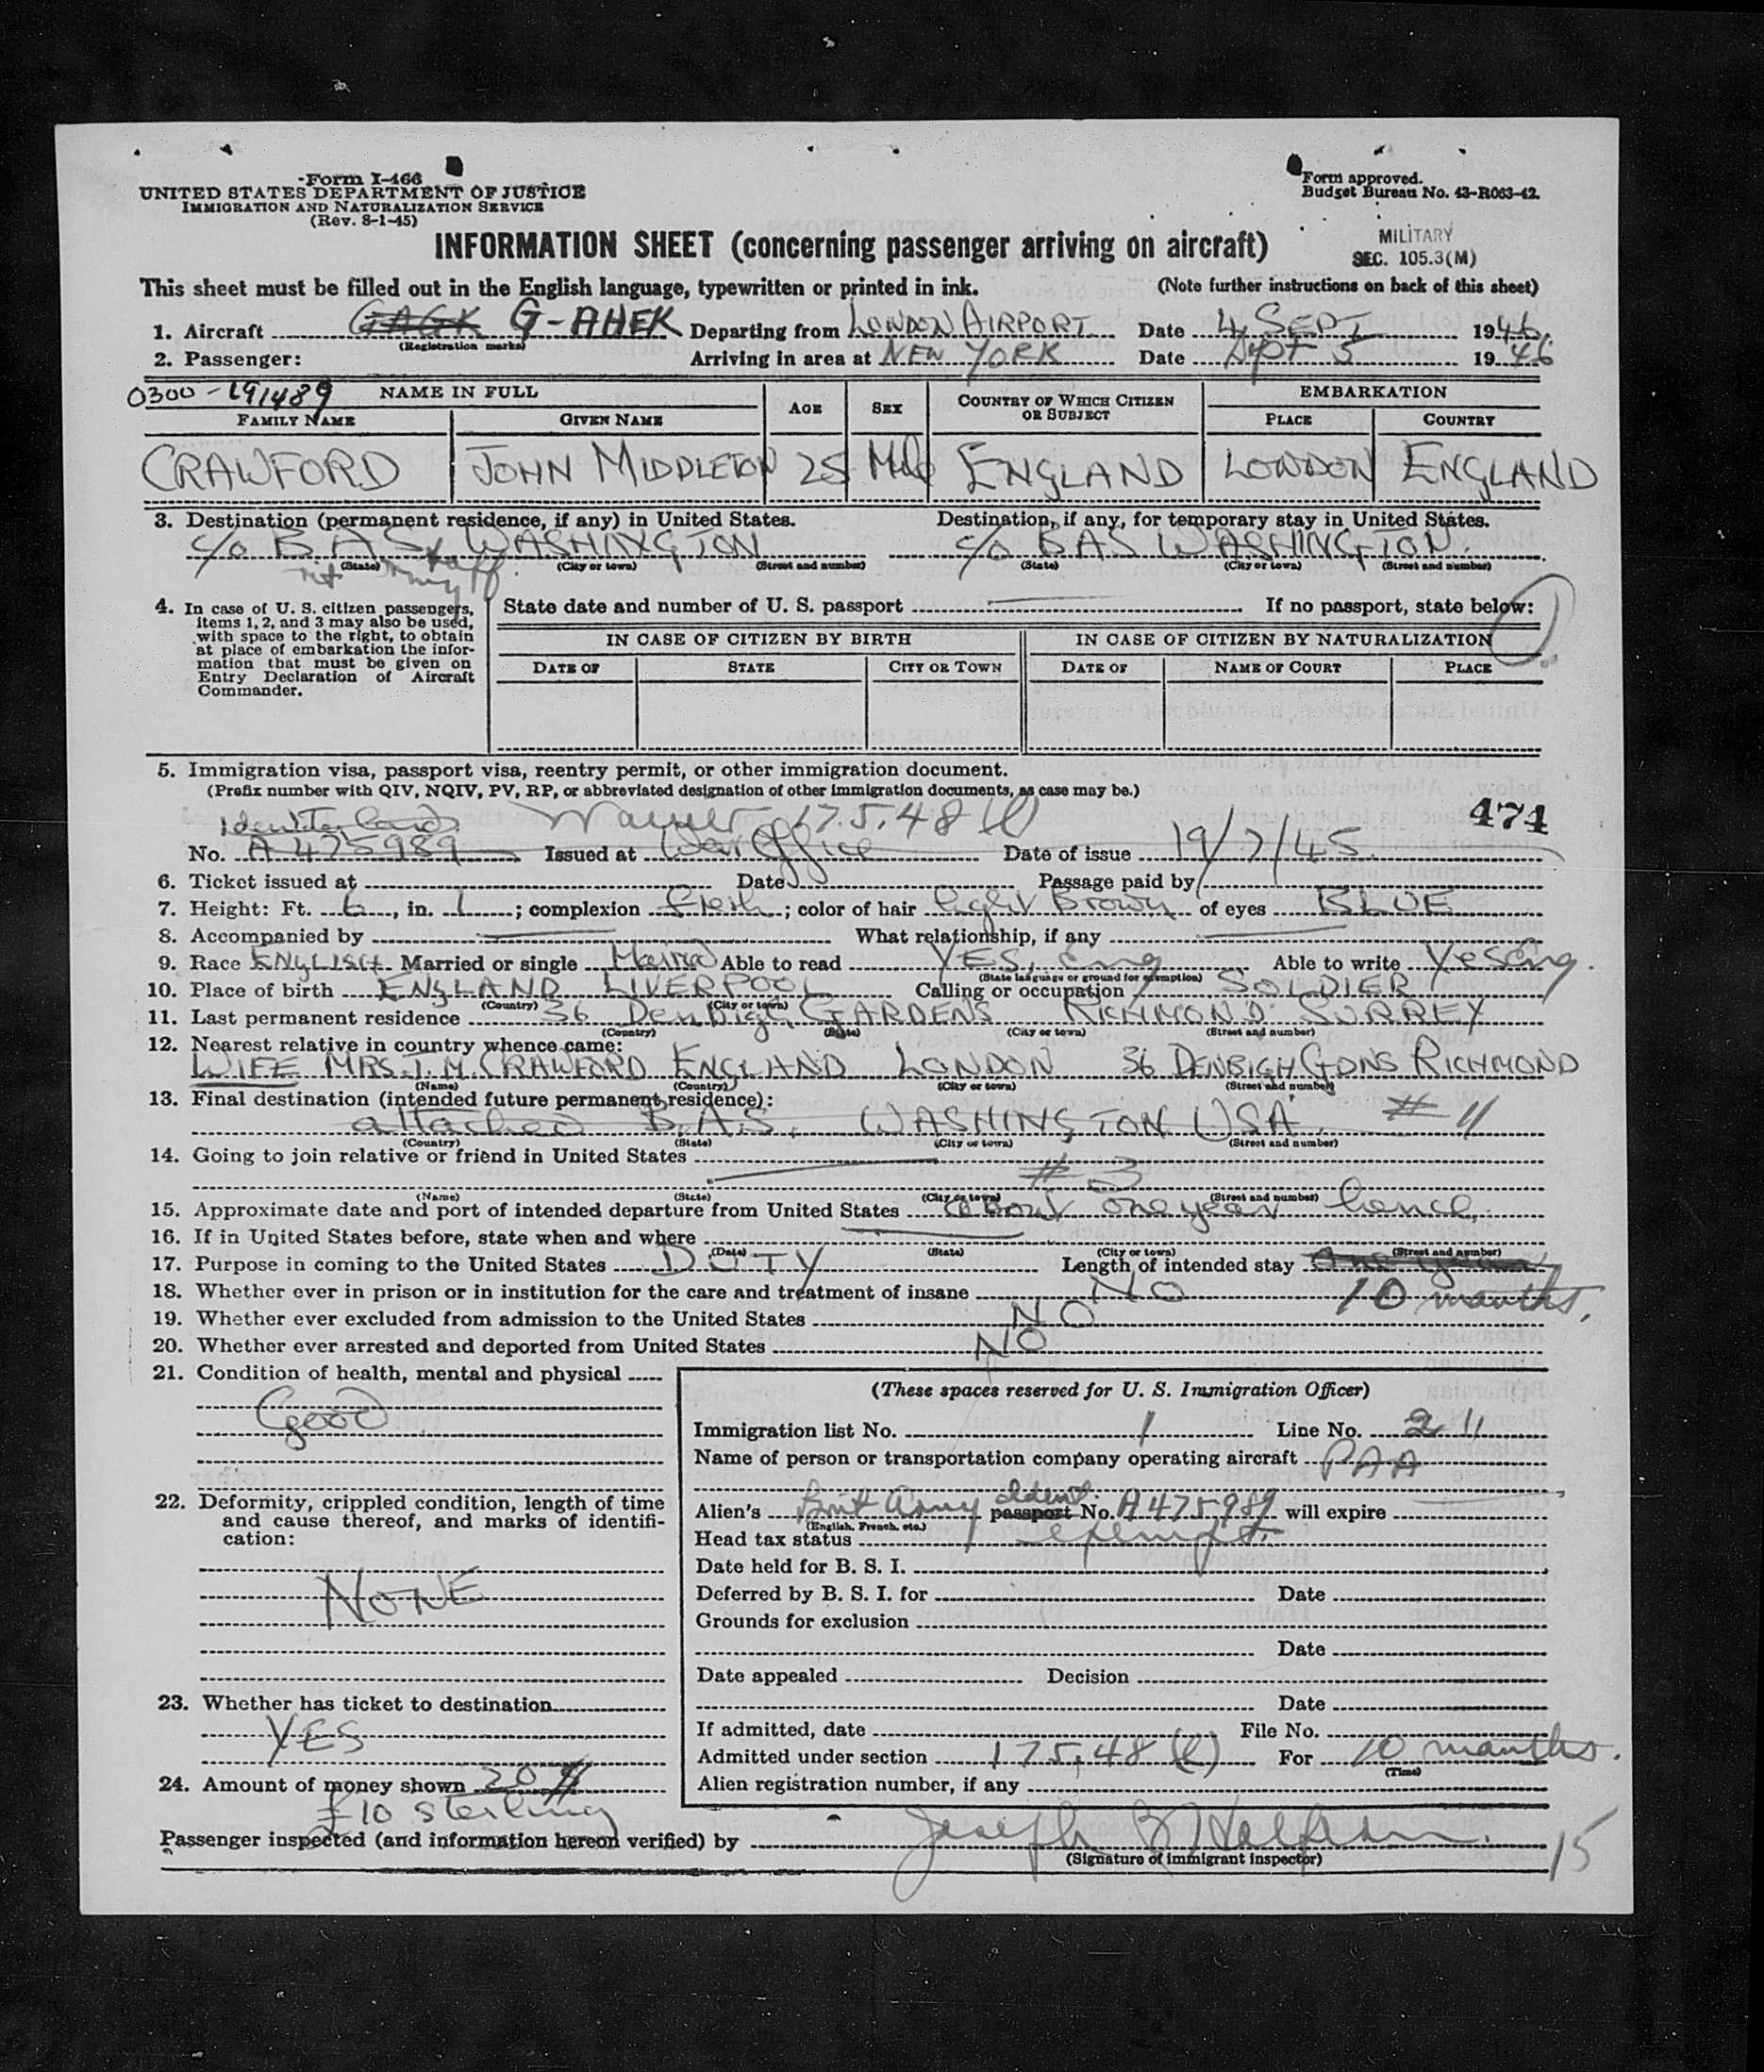 Form I-466
UNITED STATES DEPARTMENT OF JUSTICE
IMMIGRATION AND NATURALIZATION SERVICE
(Rev. 8-1-45)
Form approved.
Budget Bureau No. 43-R063-42.
INFORMATION SHEET (concerning passenger arriving on aircraft)
MILITARY
SEC. 105.3(M)
This sheet must be filled out in the English language, typewritten or printed in ink. (Note further instructions on back of this sheet)
1. Aircraft GAGK G-AHEK Departing from LONDON AIRPORT Date 4 SEPT 1946.
(Registration marks)
2. Passenger: Arriving in area at NEW YORK Date Sept 5 1946
0300-191489 NAME IN FULL AGE SEX COUNTRY OF WHICH CITIZEN OR SUBJECT EMBARKATION
FAMILY NAME GIVEN NAME PLACE COUNTRY
CRAWFORD JOHN MIDDLETON 25 Male ENGLAND LONDON ENGLAND
3. Destination (permanent residence, if any) in United States. Destination, if any, for temporary stay in United States.
c/o B A S WASHINGTON c/o BAS WASHINGTON.
(State) (City or town) (Street and number) (State) (City or town) (Street and number)
Army Staff.
4. In case of U. S. citizen passengers, items 1, 2, and 3 may also be used, with space to the right, to obtain at place of embarkation the information that must be given on Entry Declaration of Aircraft Commander.
State date and number of U. S. passport If no passport, state below:
IN CASE OF CITIZEN BY BIRTH IN CASE OF CITIZEN BY NATURALIZATION
DATE OF STATE CITY OR TOWN DATE OF NAME OF COURT PLACE
5. Immigration visa, passport visa, reentry permit, or other immigration document.
(Prefix number with QIV, NQIV, PV, RP, or abbreviated designation of other immigration documents, as case may be.)
474
Identity Card Waiver 175.48 (l)
No. A 475989 Issued at War Office Date of issue 19/7/45.
6. Ticket issued at Date Passage paid by
7. Height: Ft. 6, in. 1; complexion fresh; color of hair light Brown of eyes BLUE
8. Accompanied by What relationship, if any
9. Race ENGLISH Married or single Married Able to read YES, Eng Able to write Yes Eng.
(State language or ground for exemption)
10. Place of birth ENGLAND LIVERPOOL Calling or occupation SOLDIER
(Country) (City or town)
11. Last permanent residence 36 Denbigh GARDENS RICHMOND SURREY
(Country) (State) (City or town) (Street and number)
12. Nearest relative in country whence came:
WIFE MRS J. M. CRAWFORD ENGLAND LONDON 36 DENBIGH GDNS RICHMOND
(Name) (Country) (City or town) (Street and number)
13. Final destination (intended future permanent residence):
attached B.A.S. WASHINGTON USA. # 11
(Country) (State) (City or town) (Street and number)
14. Going to join relative or friend in United States
# 3
(Name) (State) (City or town) (Street and number)
15. Approximate date and port of intended departure from United States about one year hence.
16. If in United States before, state when and where
(Date) (State) (City or town) (Street and number)
17. Purpose in coming to the United States DUTY Length of intended stay One year
10 months.
18. Whether ever in prison or in institution for the care and treatment of insane NO
19. Whether ever excluded from admission to the United States NO
20. Whether ever arrested and deported from United States NO
21. Condition of health, mental and physical
Good
22. Deformity, crippled condition, length of time and cause thereof, and marks of identification:
NONE
23. Whether has ticket to destination
YES
24. Amount of money shown 20
£10 sterling
(These spaces reserved for U. S. Immigration Officer)
Immigration list No. 1 Line No. 2 11
Name of person or transportation company operating aircraft PAA
Alien's Brit Army Ident. passport No. A475989 will expire
(English, French, etc.)
Head tax status exempt.
Date held for B. S. I.
Deferred by B. S. I. for Date
Grounds for exclusion
Date
Date appealed Decision
Date
If admitted, date File No.
Admitted under section 175.48 (l) For 10 months.
(Time)
Alien registration number, if any
Passenger inspected (and information hereon verified) by Joseph
(Signature of immigrant inspector)
15